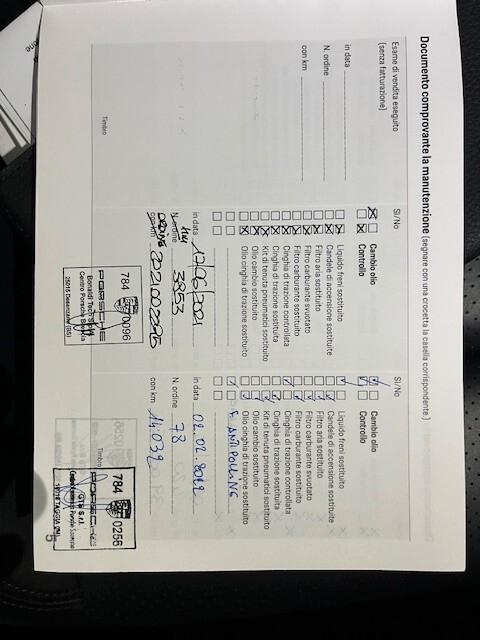 Documento comprovante la manutenzione (segnare con una crocetta la casella corrispondente)
Esame di vendita eseguito
(senza fatturazione)
in data
N. ordine
con km
Timbro
Sì/No
Cambio olio
Controllo
Liquido freni sostituito
Candele di accensione sostituite
Filtro aria sostituito
Filtro carburante svuotato
Filtro carburante sostituito
Cinghia di trazione controllata
Cinghia di trazione sostituita
Kit di tenuta pneumatici sostituito
Olio cambio sostituito
Olio cinghia di trazione sostituito
in data 17/06/2021
N. ordine KM 3853
con km ORDINE
784 0096
PORSCHE
Bonaldi Tech S.p.A.
Centro Porsche Brescia
25015 Desenzano (BS)
Sì/No
Cambio olio
Controllo
Liquido freni sostituito
Candele di accensione sostituite
Filtro aria sostituito
Filtro carburante svuotato
Filtro carburante sostituito
Cinghia di trazione controllata
Cinghia di trazione sostituita
Kit di tenuta pneumatici sostituito
Olio cambio sostituito
Olio cinghia di trazione sostituito
F. ANTIPOLLINE
in data 02.02.
N. ordine 78
con km 14.039
Timbro
784 0256
PORSCHE
S.r.l.
5